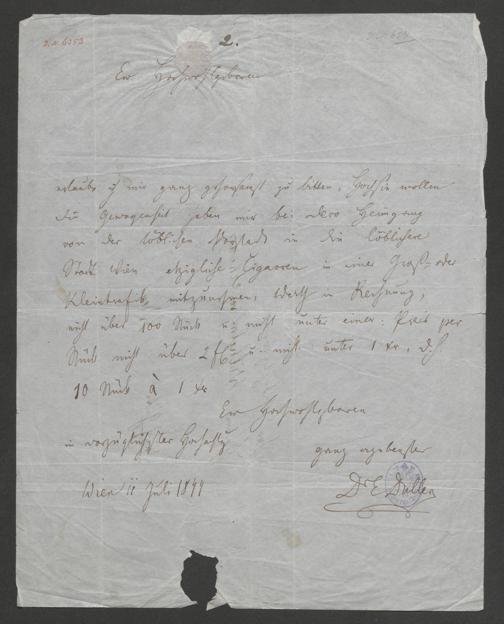 2.
Ew Hochwohlgeboren
erlaube ich mir ganz gehorsamst zu bitten, Hochsie wollen
die Gewogenheit haben mir bei dero Heimgang
von der löblichen Vorstadt in die löblichere
Stadt Wien etzigliche Cigarren in einer Groß- oder
Kleintrafik mitzunehmen, Werth in Rechnung,
nicht über 100 Stück u. nicht unter einer. Preis per
Stück nicht über 2 f u. nicht unter 1 xr, d. h.
10 Stück à 1 xr
Ew Hochwohlgeboren
in vorzüglichster Hochachtg
ganz ergebenster
Wien Juli
Dr E. Duller